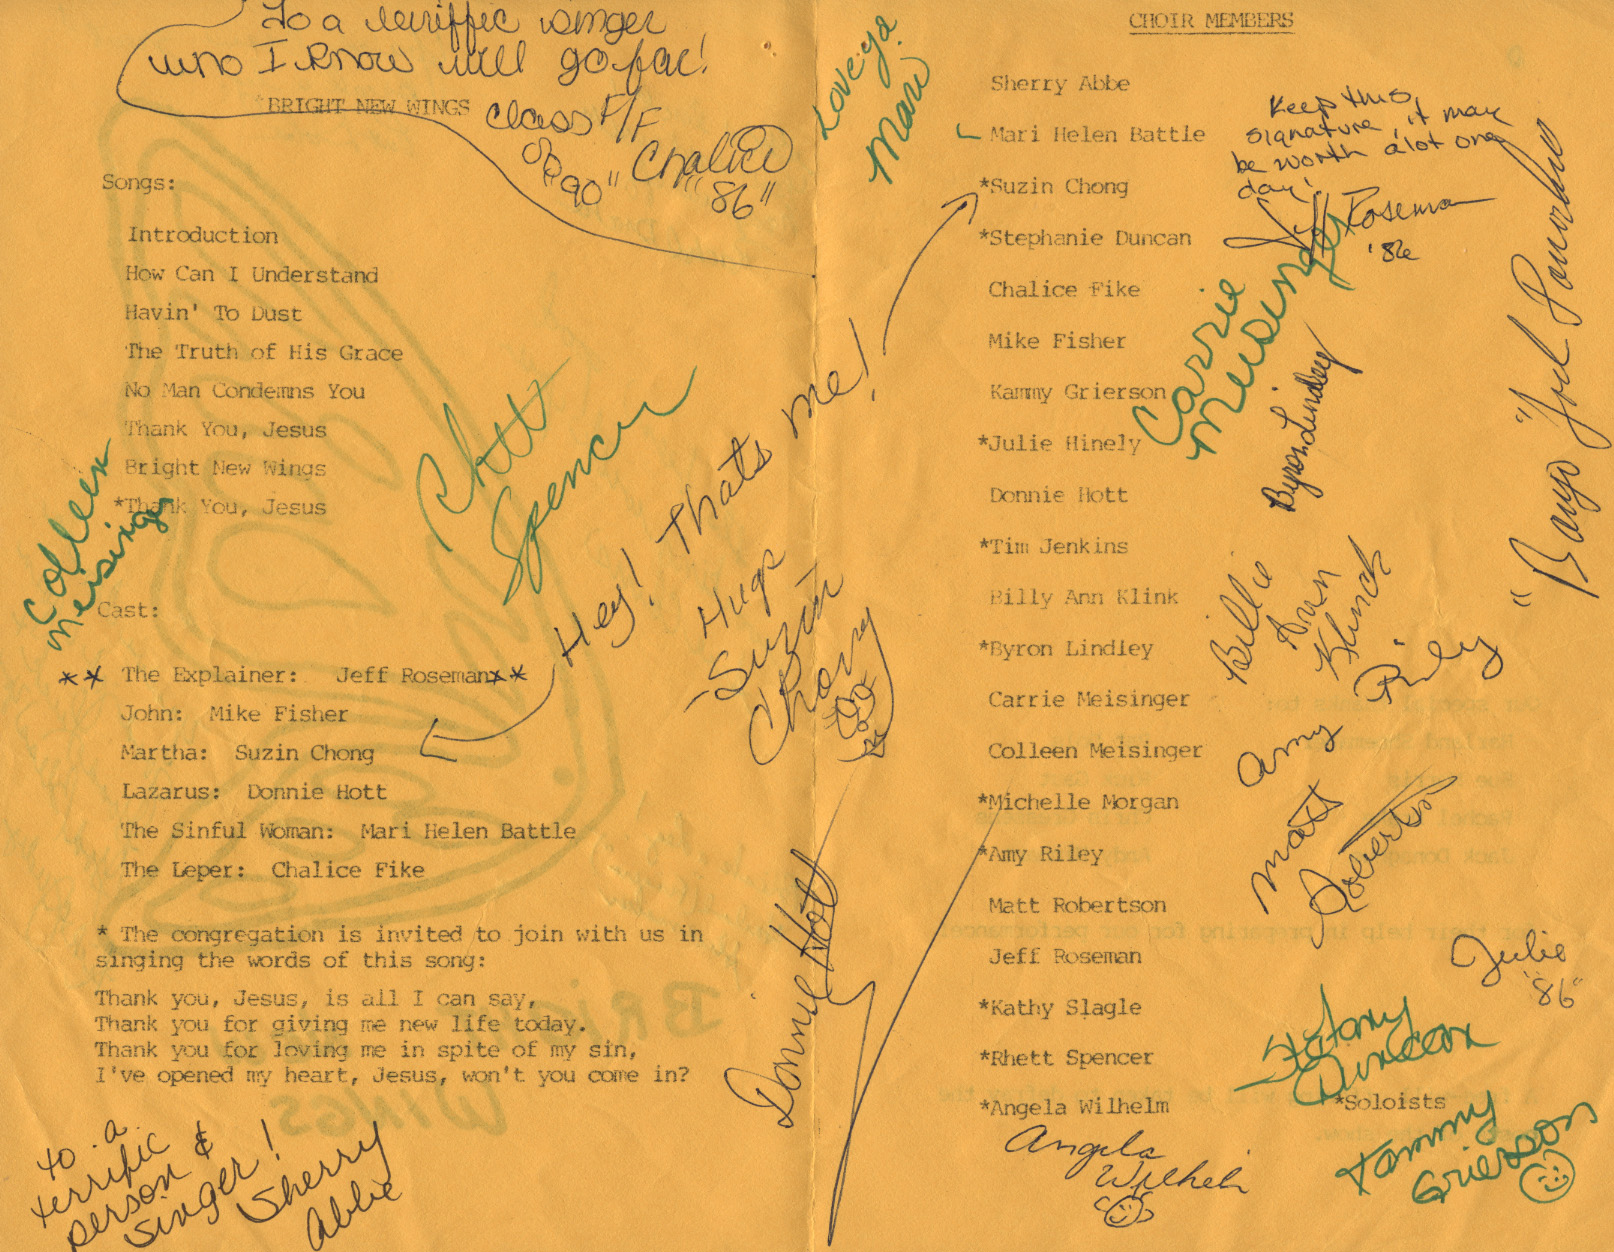 To a terriffic singer
who I know will go far!
BRIGHT NEW WINGS
class F/F
of "90"
Chalice
"86"
Songs:
Introduction
How Can I Understand
Havin' To Dust
The Truth of His Grace
No Man Condemns You
Thank You, Jesus
Bright New Wings
*Thank You, Jesus
Colleen
Meisinger
Rhett
Spencer
Cast:
** The Explainer: Jeff Roseman**
John: Mike Fisher
Martha: Suzin Chong
Lazarus: Donnie Hott
The Sinful Woman: Mari Helen Battle
The Leper: Chalice Fike
* The congregation is invited to join with us in
singing the words of this song:
Thank you, Jesus, is all I can say,
Thank you for giving me new life today.
Thank you for loving me in spite of my sin,
I've opened my heart, Jesus, won't you come in?
to a
terrific
person &
singer!
Sherry
Abbe
Hey! Thats me!
Hugs
-Suzin
Chong
Donnie Hott
Love ya
Mari
CHOIR MEMBERS
Sherry Abbe
Mari Helen Battle
*Suzin Chong
*Stephanie Duncan
Chalice Fike
Mike Fisher
Kammy Grierson
*Julie Hinely
Donnie Hott
*Tim Jenkins
Billy Ann Klink
*Byron Lindley
Carrie Meisinger
Colleen Meisinger
*Michelle Morgan
*Amy Riley
Matt Robertson
Jeff Roseman
*Kathy Slagle
*Rhett Spencer
*Angela Wilhelm
*Soloists
Keep this
signature, it may
be worth alot one
day!
Jeff Roseman
'86
Carrie
Meisinger
Byron Lindley
Billie
Ann
Klinck
Amy Riley
Matt
Robertson
Julie
"86"
Duncan
Kammy
Grierson
Angela
Wilhelm